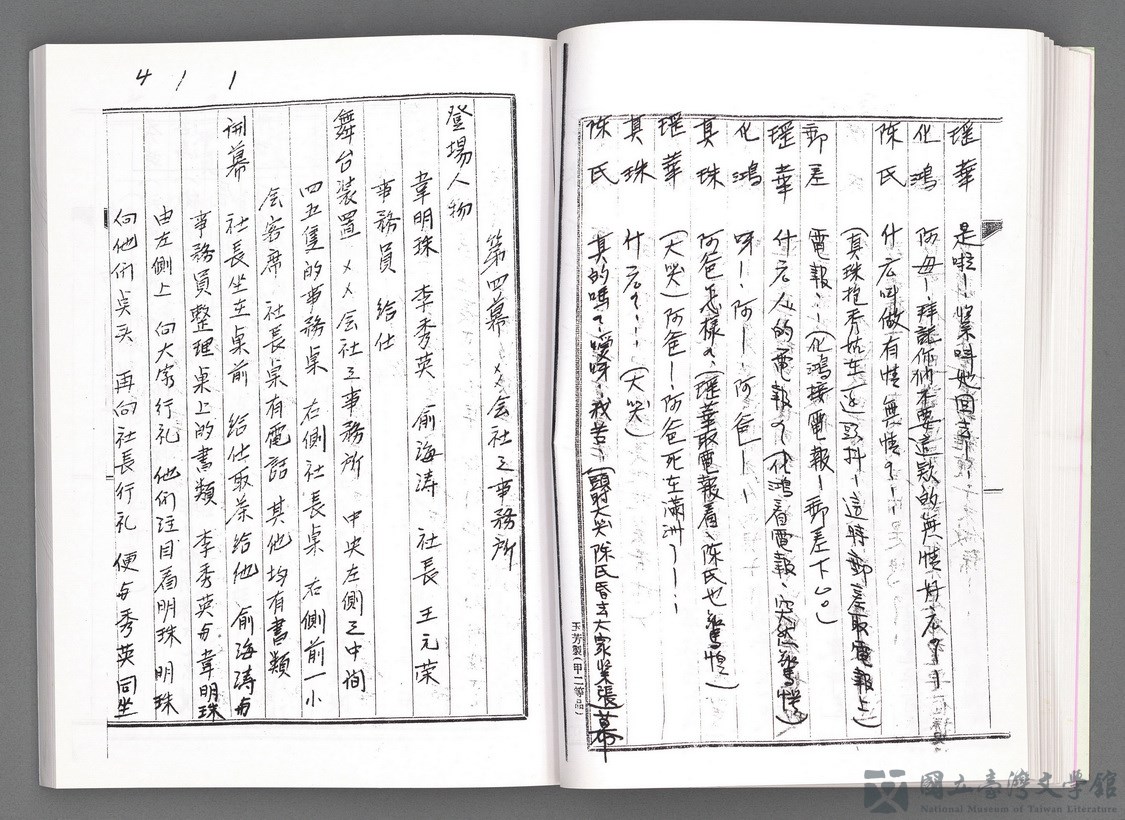 瑶華　是啦！緊呼她回去！
化鴻　阿母！拜託你們不要這款的無情好么？
陈氏　什么叫做有情無情？！！
（真珠抱秀姑在這頭抖！這時郵差取電報上）
郵差　電報！！（化鴻接電報！郵差下。。）
瑶華　什么人的電報？（化鴻看電報、突然驚慌）
化鴻　呀！！阿！！阿爸！！
真珠　阿爸怎樣？（瑶華取電報看、陈氏也驚慌）
瑶華　（大哭）阿爸！阿爸死在滿洲了！！！
真珠　什么？！！（大哭）
陈氏　真的嗎？噯呀！我苦！（大哭陈氏昏去大家緊張）幕
玉芳製（甲二等品）
4 1 1
第四幕　××会社之事務所
登場人物
韋明珠　李秀英　俞海涛　社長　王元荣
事務員　給仕
舞台装置　××会社之事務所　中央左側之中间
四五隻的事務桌　右側社長桌　右側前一小
会客席　社長桌有電話　其他均有書類
開幕　社長坐在桌前　給仕取茶給他　俞海涛与
事務員整理桌上的書類　李秀英与韋明珠
由左側上　向大家行礼　他们注目看明珠　明珠
向他们点头　再向社長行礼　便与秀英同坐
國立臺灣文學館
National Museum of Taiwan Literature